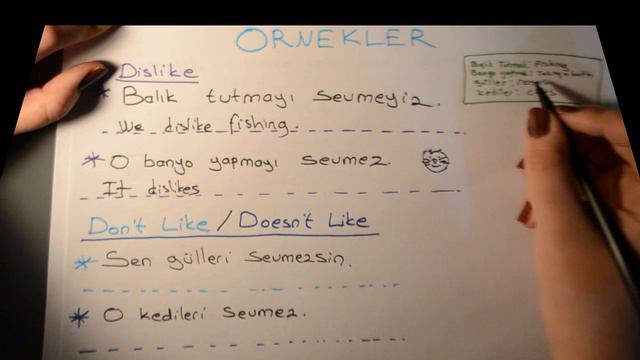 ÖRNEKLER
Dislike
* Balık tutmayı sevmeyiz.
We dislike fishing.
* O banyo yapmayı sevmez.
It dislikes
Don't Like / Doesn't Like
* Sen gülleri sevmezsin.
* O kedileri sevmez.
Balık tutmak: fishing
Banyo yapmak: Taking a bath
güller:
kediler: cats